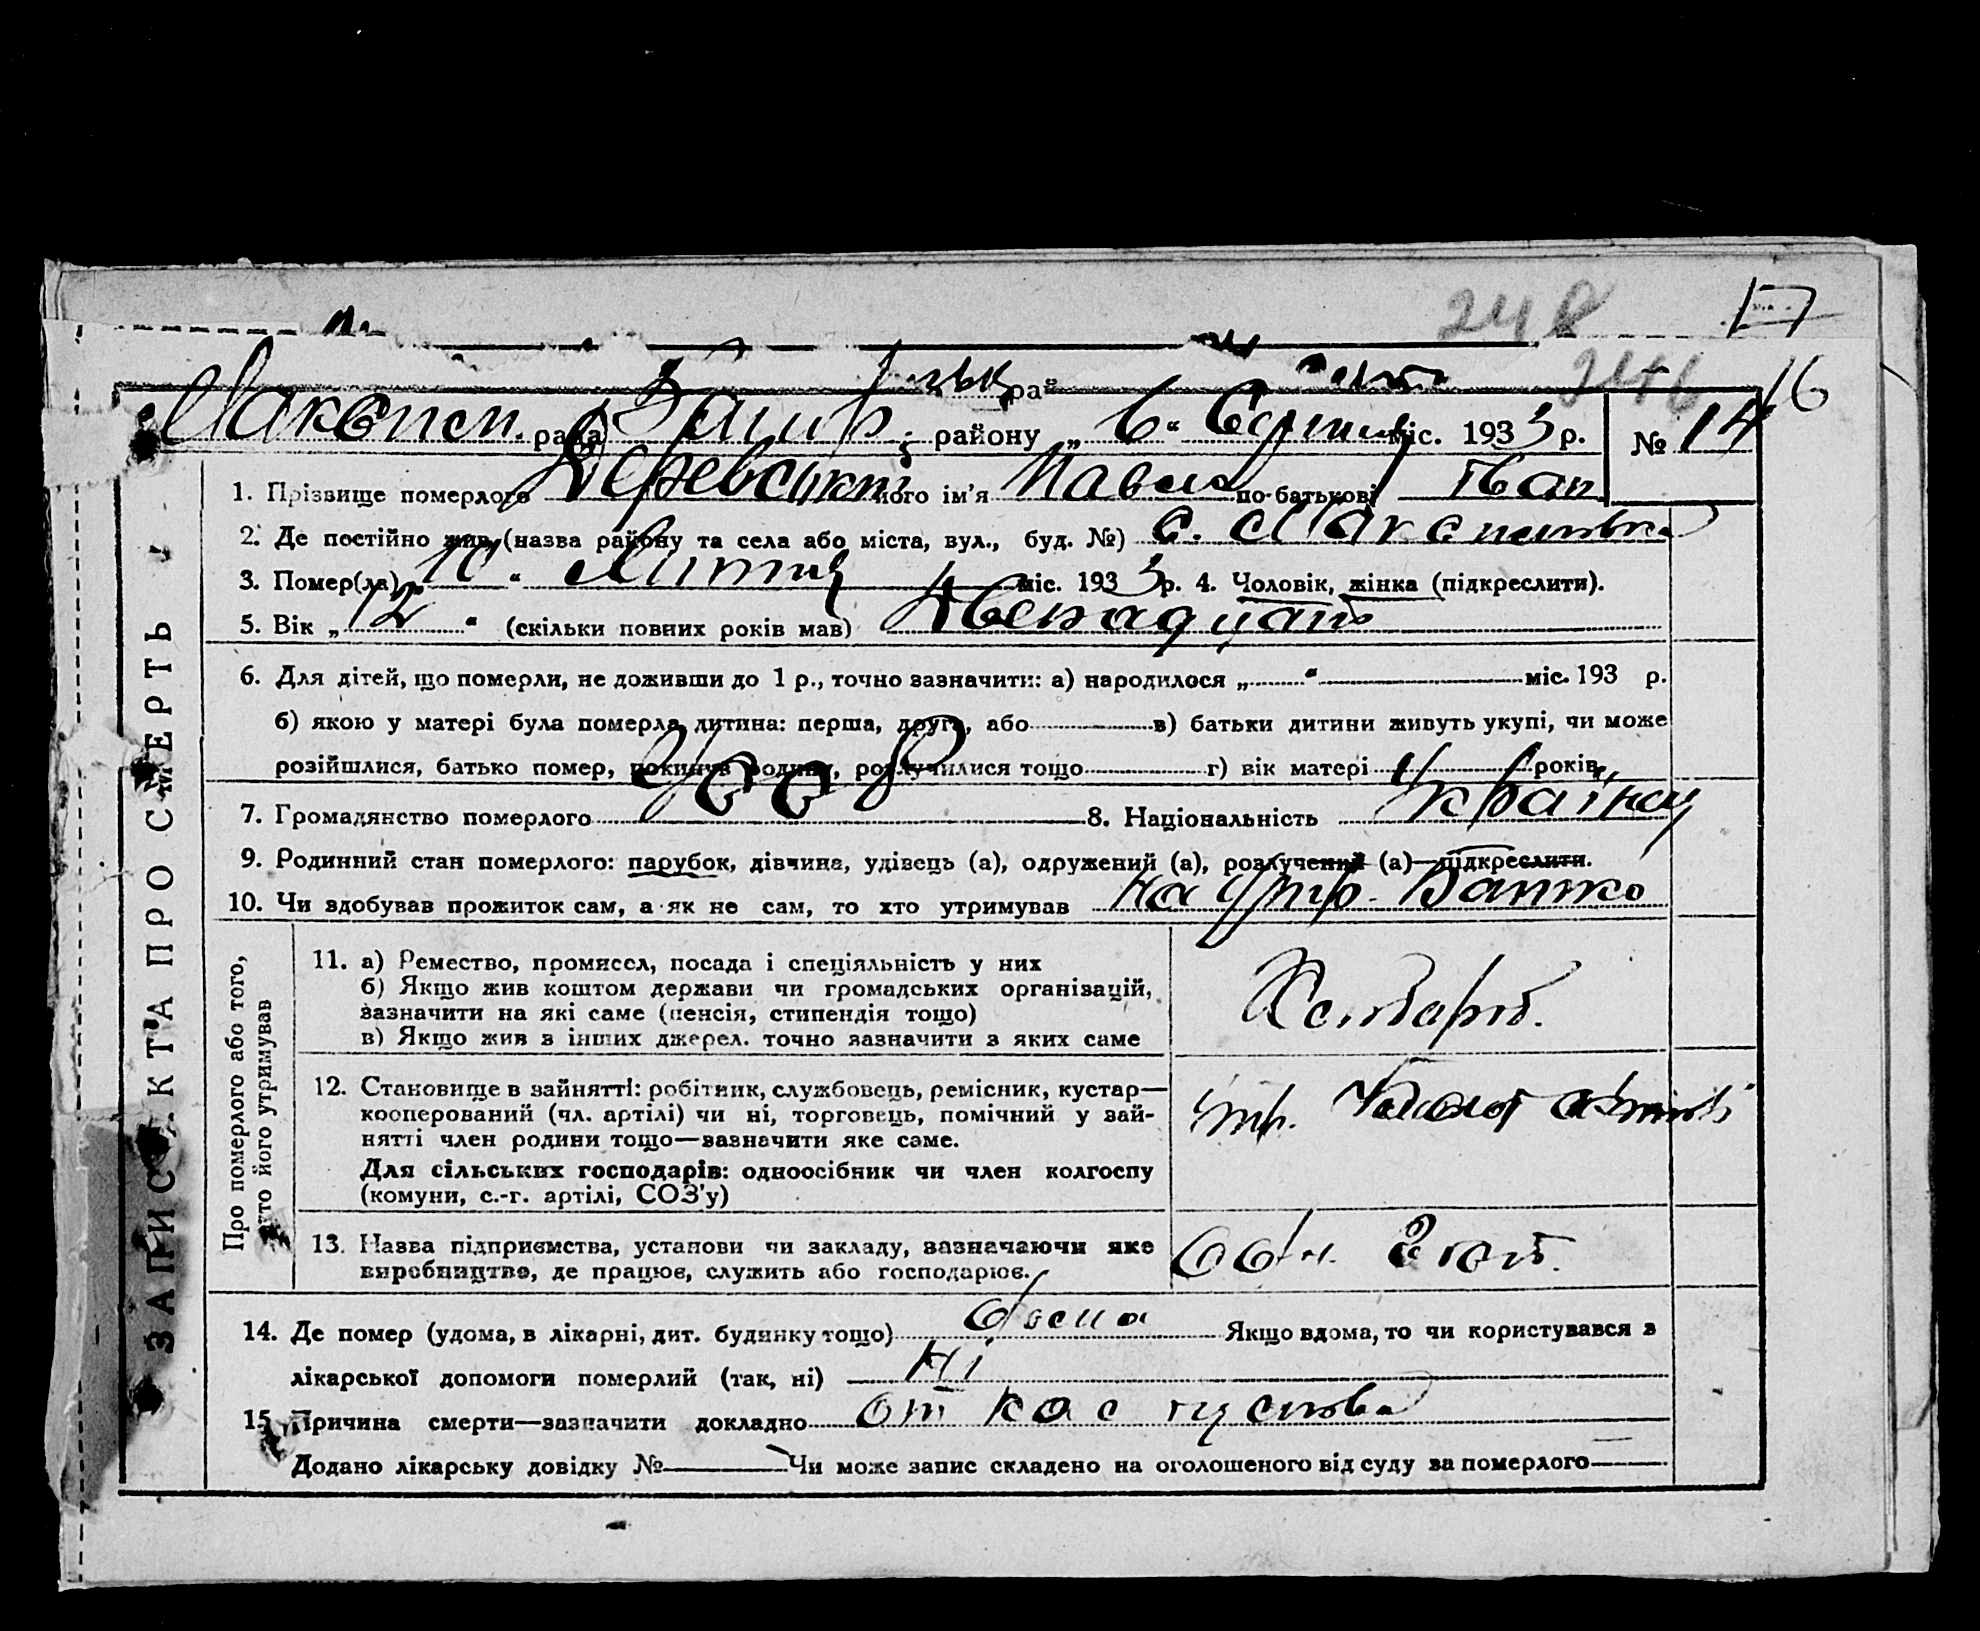 248 17
246 16
рай
рада району „ 6 “ міс. 1933 р. № 14
1. Прізвище померлого Деревський його ім'я Павло по-батькові Іван
2. Де постійно жив (назва району та села або міста, вул., буд. №) с.
3. Помер(ла) „ 10 “ міс. 1933 р. 4. Чоловік, жінка (підкреслити).
5. Вік „ 12 “ (скільки повних років мав) Двенадцать
6. Для дітей, що померли, не доживши до 1 р., точно зазначити: а) народилося „ “ міс. 193 р.
б) якою у матері була померла дитина: перша, друга, або в) батьки дитини живуть укупі, чи може
розійшлися, батько помер, покинув родину, розлучилися тощо г) вік матері років
7. Громадянство померлого УССР 8. Національність Україн
9. Родинний стан померлого: парубок, дівчина, удівець (а), одружений (а), розлучений (а)—підкреслити.
10. Чи здобував прожиток сам, а як не сам, то хто утримував на утр. Батько
ЗАПИС АКТА ПРО СМЕРТЬ
Про померлого або того, хто його утримував
11. а) Ремество, промисел, посада і спеціяльність у них
б) Якщо жив коштом держави чи громадських організацій,
зазначити на які саме (пенсія, стипендія тощо)
в) Якщо жив з інших джерел. точно зазначити з яких саме
12. Становище в зайнятті: робітник, службовець, ремісник, кустар—
кооперований (чл. артілі) чи ні, торговець, помічний у зай-
нятті член родини тощо—зазначити яке саме.
Для сільських господарів: одноосібник чи член колгоспу
(комуни, с.-г. артілі, СОЗ'у)
13. Назва підприємства, установи чи закладу, зазначаючи яке
виробництво, де працює, служить або господарює.
14. Де помер (удома, в лікарні, дит. будинку тощо) дома Якщо вдома, то чи користувався з
лікарської допомоги померлий (так, ні) ні
15. Причина смерти—зазначити докладно от
Додано лікарську довідку № Чи може запис складено на оголошеного від суду за померлого